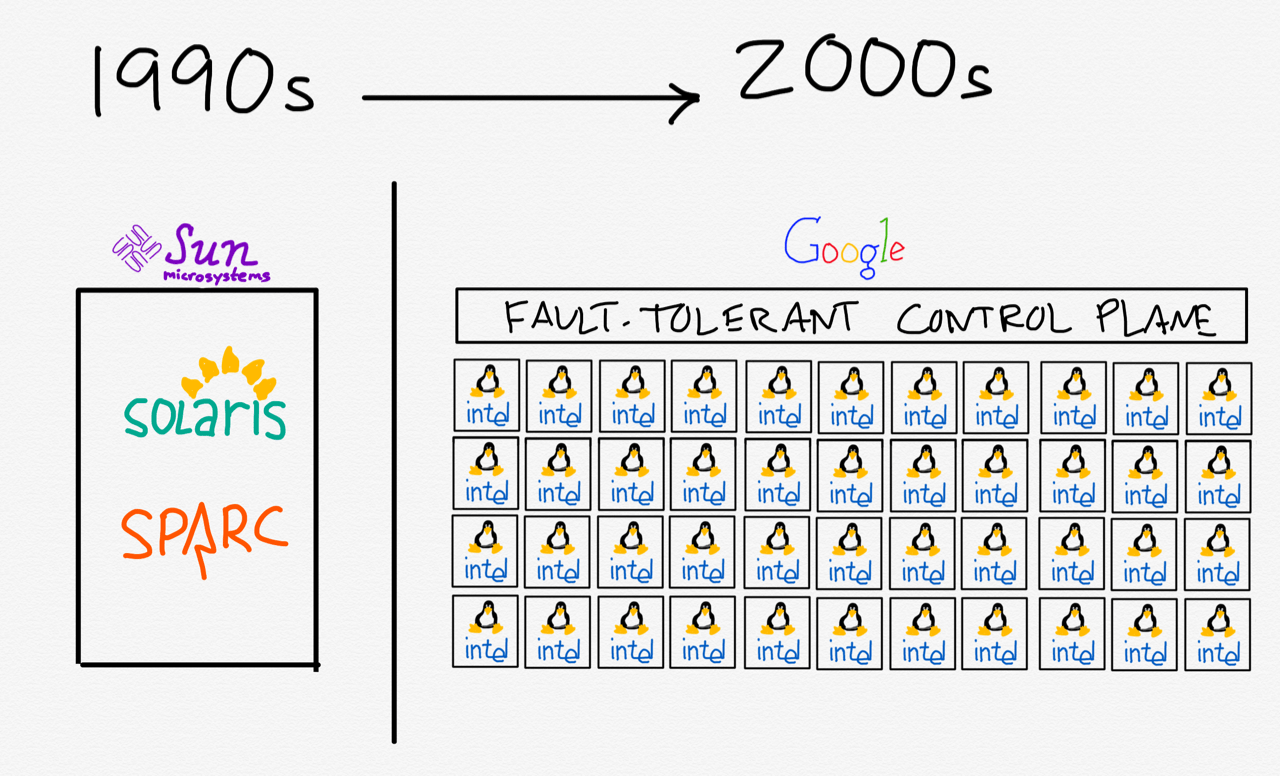 1990s
2000s
Sun
microsystems
Google
FAULT-TOLERANT CONTROL PLANE
SOLARIS
SPARC
intel intel intel intel intel intel intel intel intel intel intel
intel intel intel intel intel intel intel intel intel intel intel
intel intel intel intel intel intel intel intel intel intel intel
intel intel intel intel intel intel intel intel intel intel intel